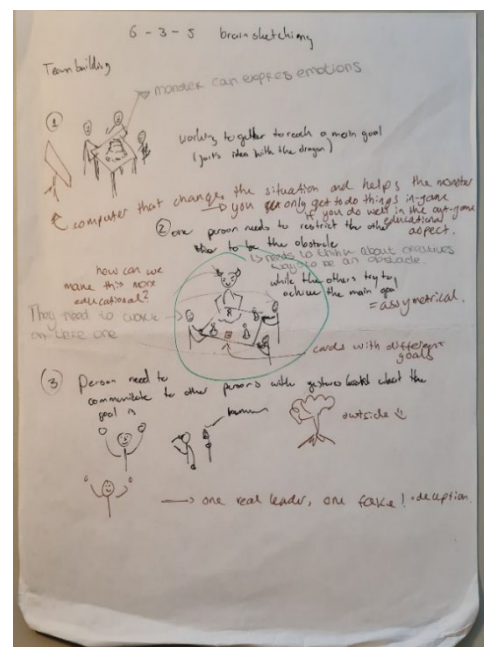 6 - 3 - 5 brainsketching
Team building
monster can expres emotions
①
working together to reach a main goal
( idea with the dragon)
computer that changes the situation and helps the monster
→ you only get to do things in-game
if you do well in the out-game
educational aspect.
② one person needs to restrict the other
to be the obstacle
↳ needs to think about creatives
ways to be an obstacle.
while the others try to
achieve the main goal
= assymetrical.
how can we
make this more
educational?
They need to work
on there one
cards with different
goals
③ Person need to
communicate to other persons with gestures what the
goal is
human
outside
→ one real leader, one fake! · deception.